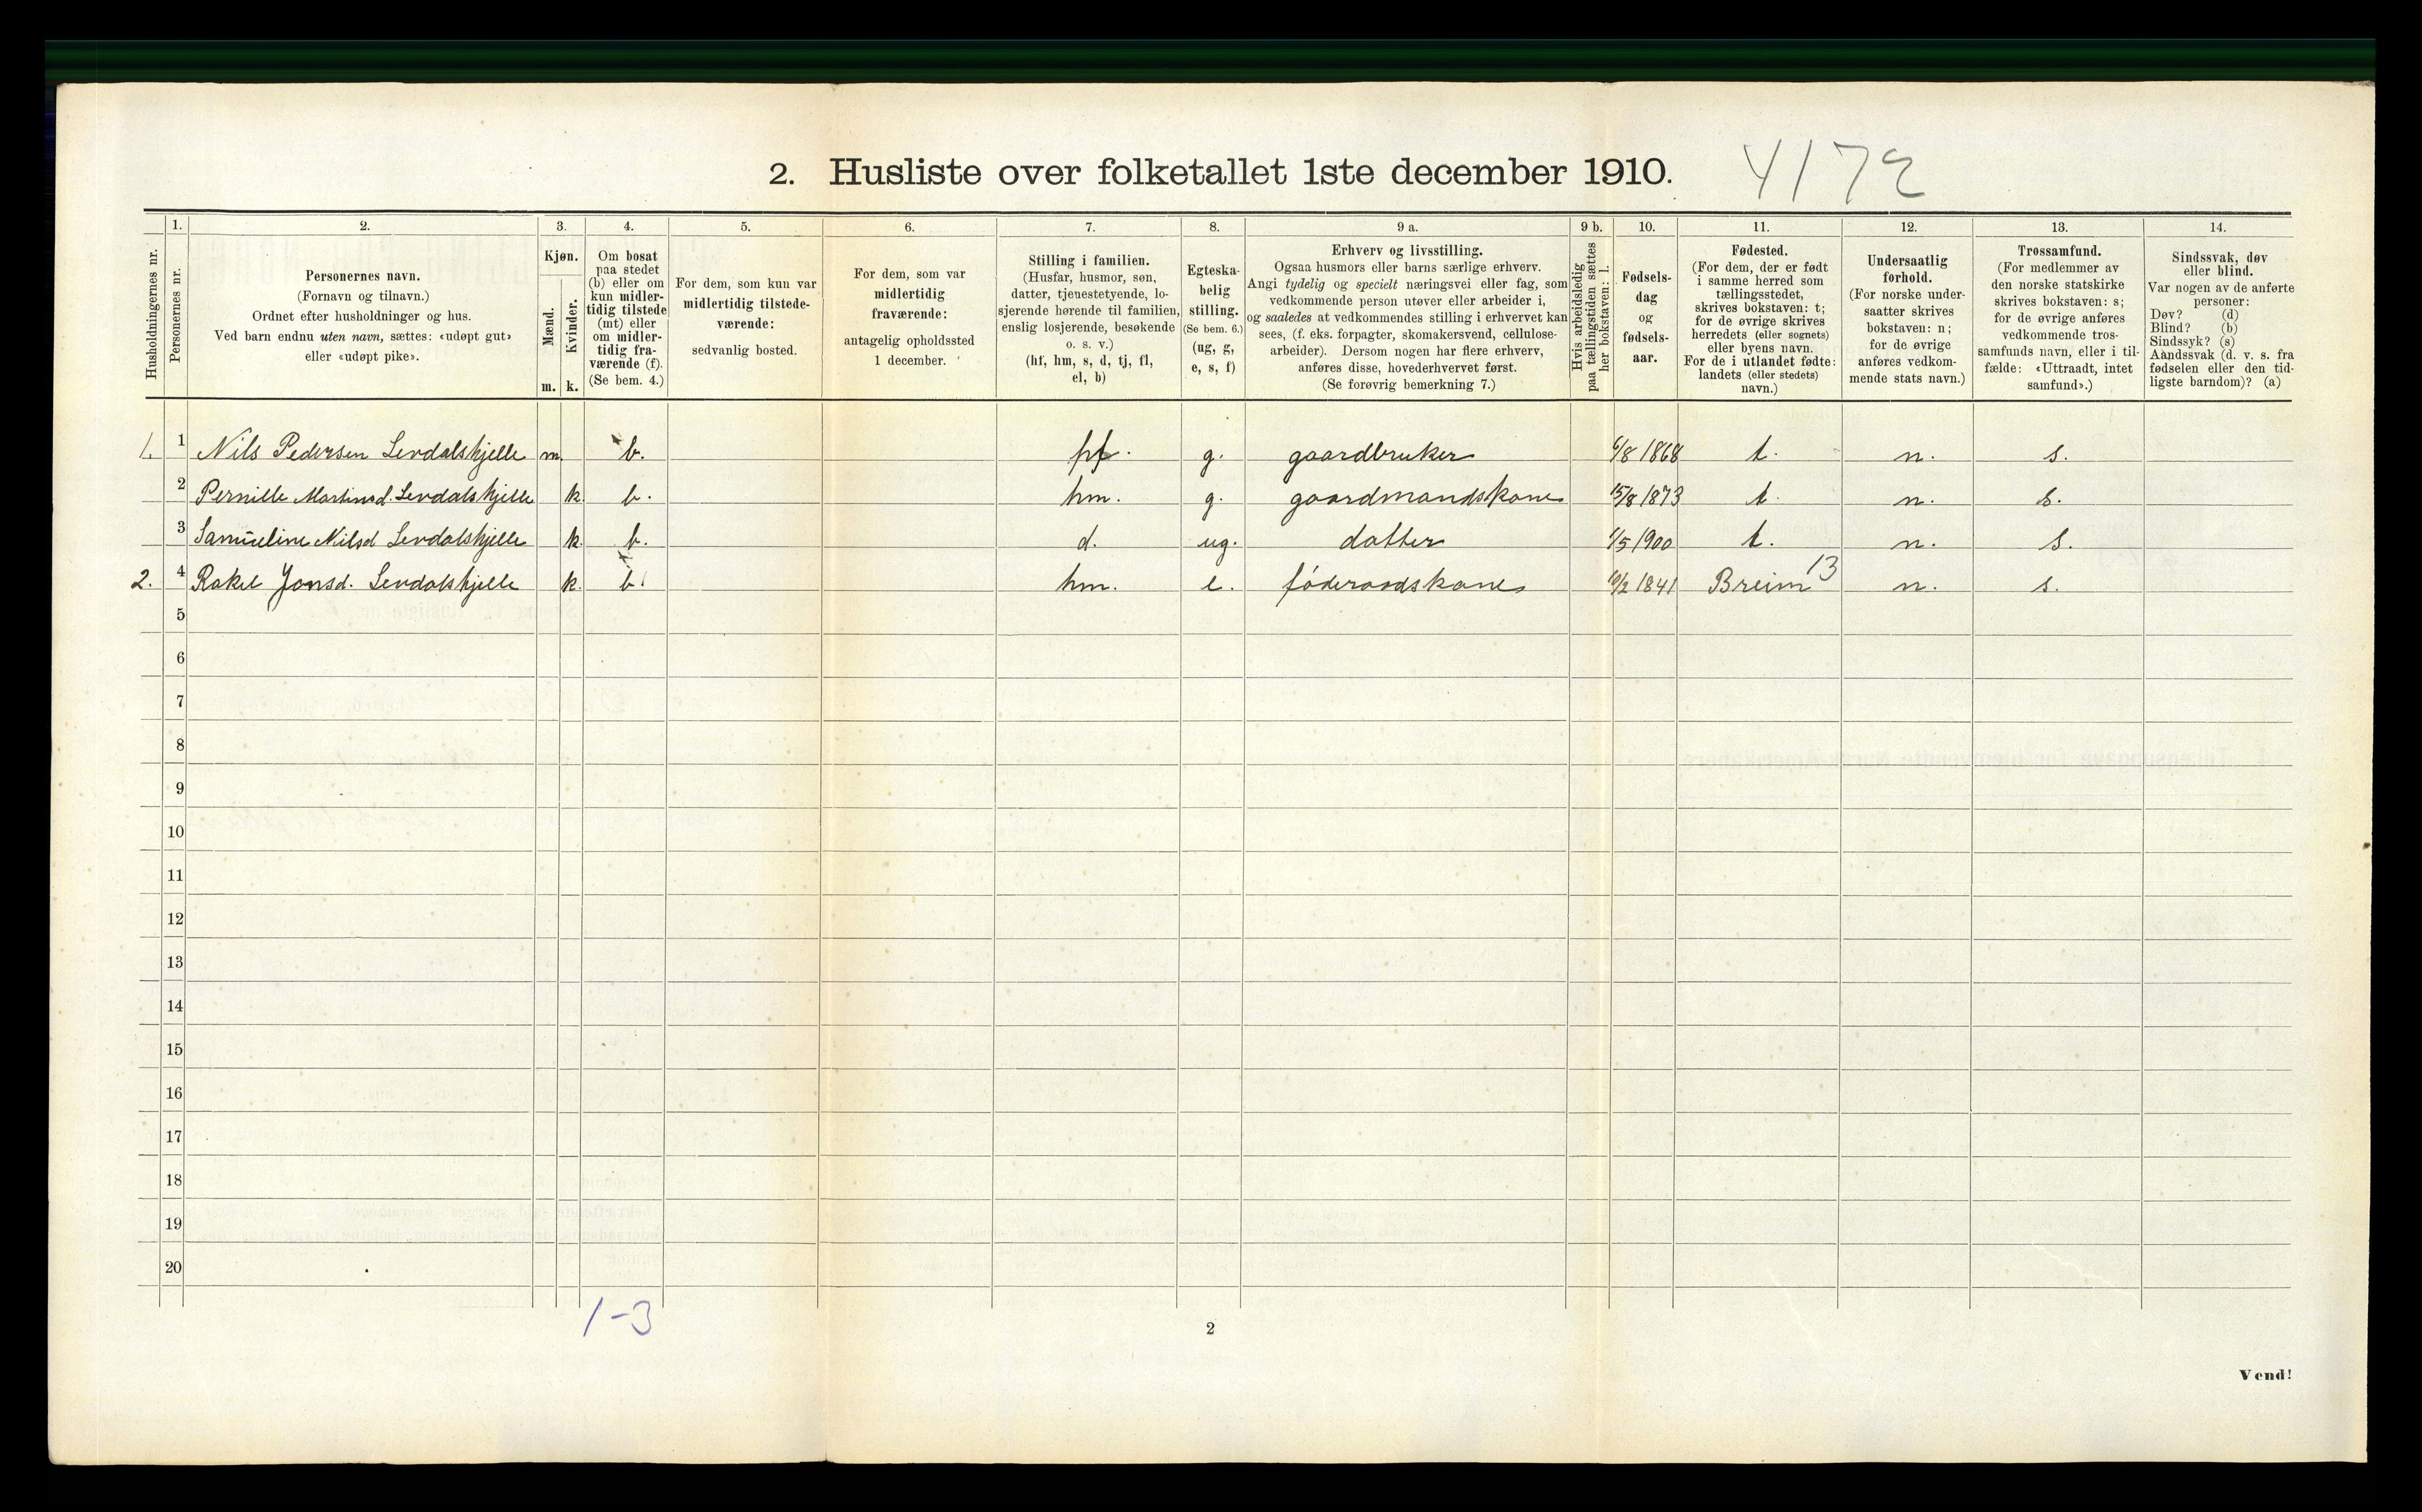 2. Husliste over folketallet 1ste december 1910. 4172
1. 2. 3. 4. 5. 6. 7. 8. 9 a. 9 b. 10. 11. 12. 13. 14.
Husholdningernes nr.
Personernes nr.
Personernes navn.
(Fornavn og tilnavn.)
Ordnet efter husholdninger og hus.
Ved barn endnu uten navn, sættes: «udøpt gut»
eller «udøpt pike».
Kjøn.
Mænd.
Kvinder.
m. k.
Om bosat
paa stedet
(b) eller om
kun midler-
tidig tilstede
(mt) eller
om midler-
tidig fra-
værende (f).
(Se bem. 4.)
For dem, som kun var
midlertidig tilstede-
værende:
sedvanlig bosted.
For dem, som var
midlertidig
fraværende:
antagelig opholdssted
1 december.
Stilling i familien.
(Husfar, husmor, søn,
datter, tjenestetyende, lo-
sjerende hørende til familien,
enslig losjerende, besøkende
o. s. v.)
(hf, hm, s, d, tj, fl,
el, b)
Egteska-
belig
stilling.
(Se bem. 6.)
(ug, g,
e, s, f)
Erhverv og livsstilling.
Ogsaa husmors eller barns særlige erhverv.
Angi tydelig og specielt næringsvei eller fag, som
vedkommende person utøver eller arbeider i,
og saaledes at vedkommendes stilling i erhvervet kan
sees, (f. eks. forpagter, skomakersvend, cellulose-
arbeider). Dersom nogen har flere erhverv,
anføres disse, hovederhvervet først.
(Se forøvrig bemerkning 7.)
Hvis arbeidsledig
paa tællingstiden sættes
her bokstaven: l.
Fødsels-
dag
og
fødsels-
aar.
Fødested.
(For dem, der er født
i samme herred som
tællingsstedet,
skrives bokstaven: t;
for de øvrige skrives
herredets (eller sognets)
eller byens navn.
For de i utlandet fødte:
landets (eller stedets)
navn.)
Undersaatlig
forhold.
(For norske under-
saatter skrives
bokstaven: n;
for de øvrige
anføres vedkom-
mende stats navn.)
Trossamfund.
(For medlemmer av
den norske statskirke
skrives bokstaven: s;
for de øvrige anføres
vedkommende tros-
samfunds navn, eller i til-
fælde: «Uttraadt, intet
samfund».)
Sindssvak, døv
eller blind.
Var nogen av de anførte
personer:
Døv? (d)
Blind? (b)
Sindssyk? (s)
Aandssvak (d. v. s. fra
fødselen eller den tid-
ligste barndom)? (a)
1. 1 Nils Pedersen Levdalshjelle m. b. hf. g. gaardbruker 6/8 1868 t. n. s.
2 Pernille Martinsd. Levdalshjelle k. b. hm. g. gaardmandskone 15/8 1873 t. n. s.
3 Samueline Nilsd Levdalshjelle k. b. d. ug. datter 1/5 1900 t. n. s.
2. 4 Rakel Jonsd. Levdalshjelle k. b. hm. e. føderaadskone 10/2 1841 Breim 13 n. s.
5
6
7
8
9
10
11
12
13
14
15
16
17
18
19
20
1-3
2
Vend!